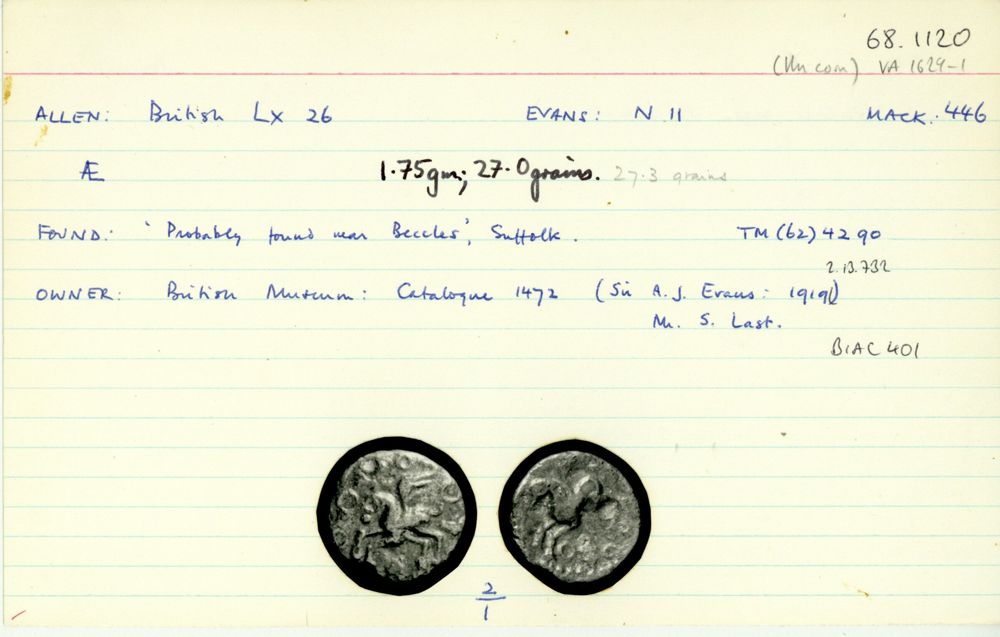 68.1120
(Un com) VA 1629-1
ALLEN: British Lx 26 EVANS: N 11 MACK. 446
Æ 1.75gm; 27.0grains. 27.3 grains
FOUND: 'Probably found near Beccles', Suffolk. TM (62) 42 90
2.13.732
OWNER: British Museum: Catalogue 1472 (Sir A. J. Evans: 1919)
Mr. S. Last.
BIAC 401
2
1